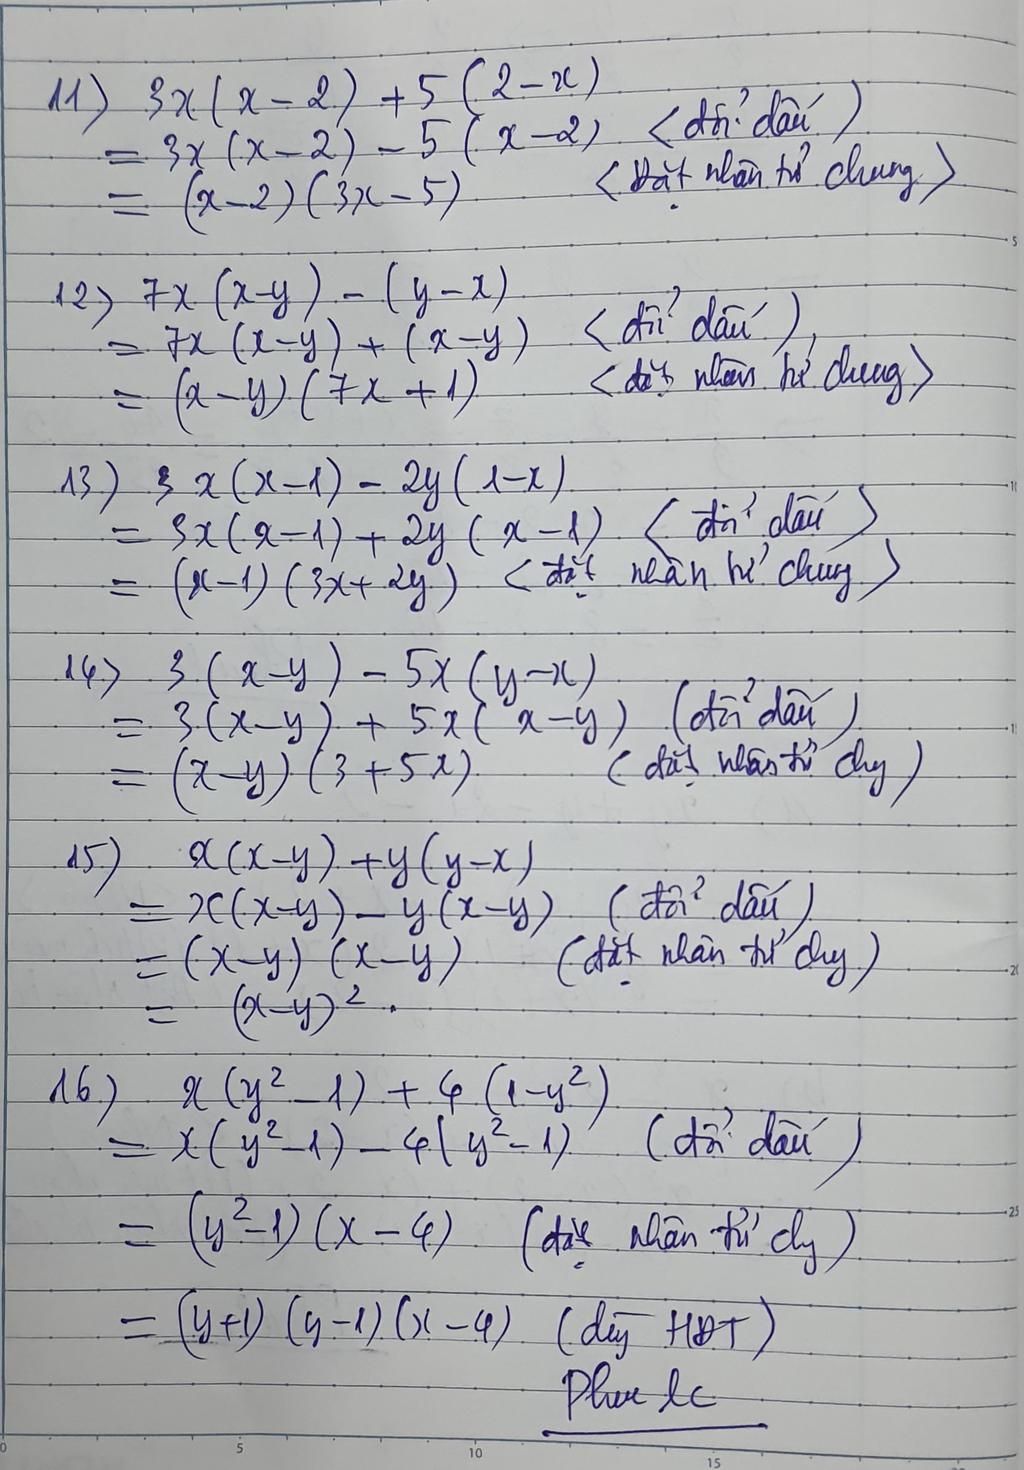 11) 3x(x-2) + 5(2-x)
= 3x(x-2) - 5(x-2) <đổi dấu)
= (x-2)(3x-5) <Đặt nhân tử chung>
12) 7x(x-y) - (y-x)
= 7x(x-y) + (x-y) <đổi dấu)
= (x-y)(7x+1) <đặt nhân tử chung>
13) 3x(x-1) - 2y(1-x)
= 3x(x-1) + 2y(x-1) <đổi dấu>
= (x-1)(3x+2y) <đặt nhân tử chung>
14) 3(x-y) - 5x(y-x)
= 3(x-y) + 5x(x-y) (đổi dấu)
= (x-y)(3+5x) (đặt nhân tử chg)
15) x(x-y) + y(y-x)
= x(x-y) - y(x-y) (đổi dấu)
= (x-y)(x-y) (đặt nhân tử chg)
= (x-y)².
16) x(y²-1) + 4(1-y²)
= x(y²-1) - 4(y²-1) (đổi dấu)
= (y²-1)(x-4) (đặt nhân tử chg)
= (y+1)(y-1)(x-4) (dùg HĐT)
5
10
15
20
25
0 5 10 15